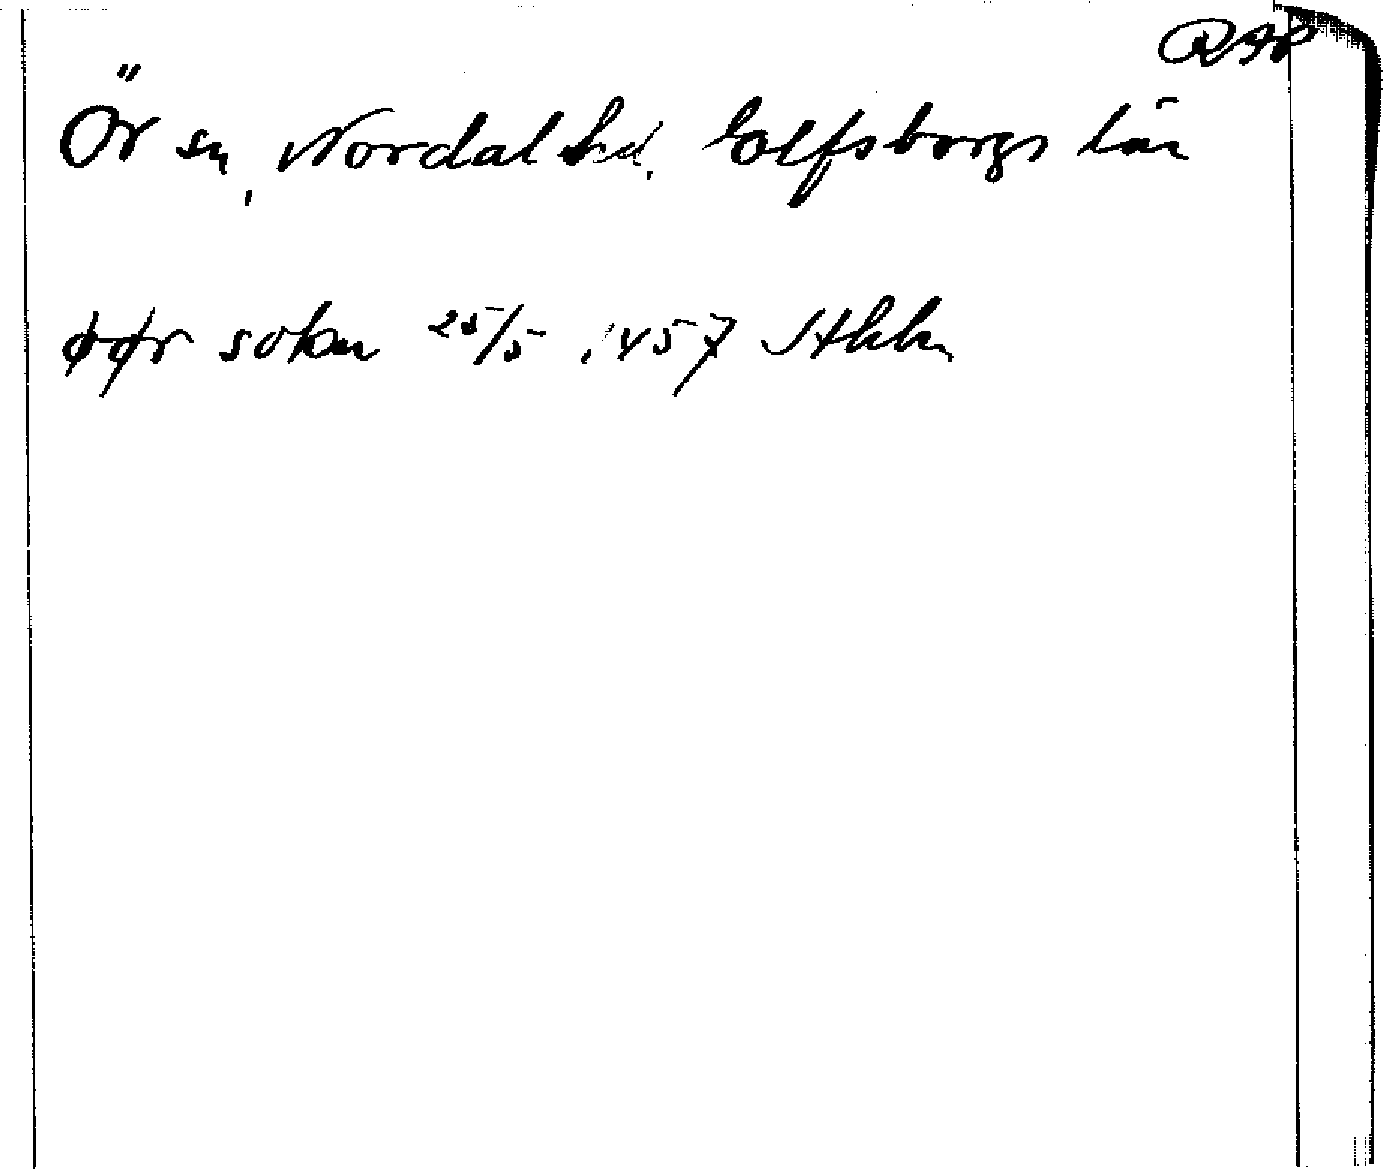 RAP
Ör sn, Nordal hd. Elfsborgs län
øør sokn 25/5 1457 Sthlm